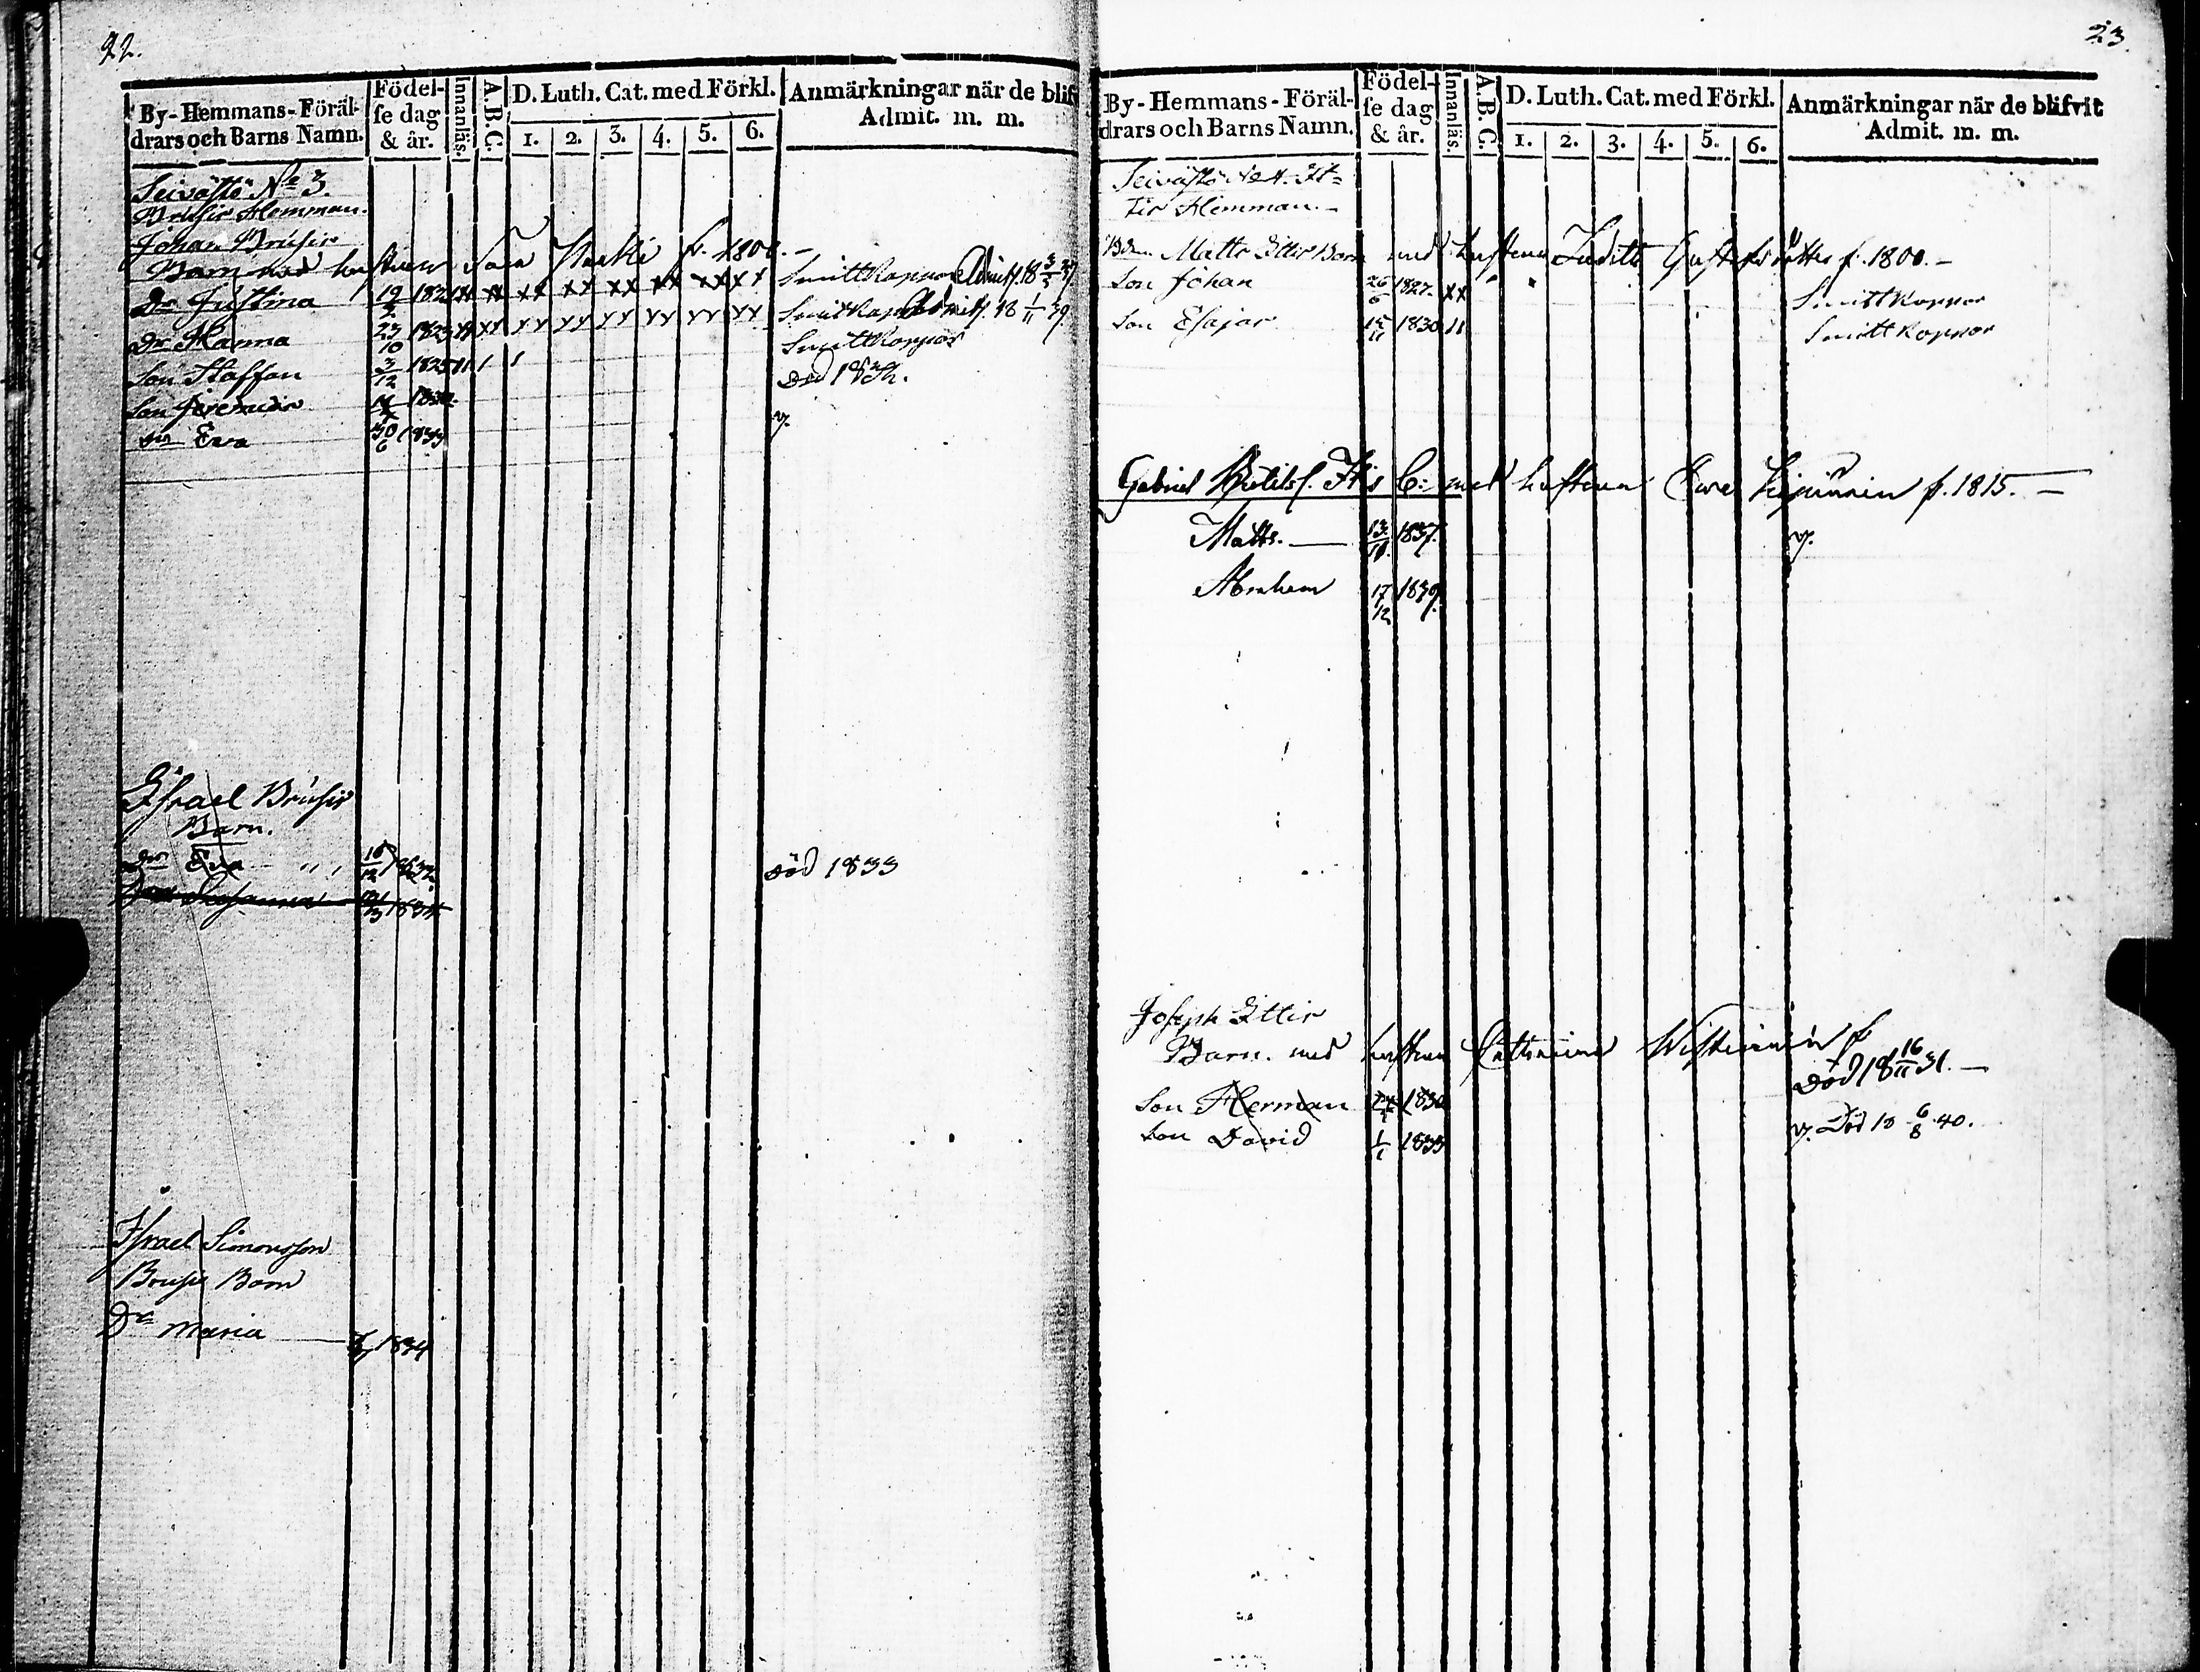 22.
By-Hemmans-Föräl-
drars och Barns Namn.
Födel-
se dag
& år.
Innanläs.
A.B.C.
D. Luth. Cat. med Förkl.
1. 2. 3. 4. 5. 6.
Anmärkningar när de blif
Admit. m. m.
Seivästö No 3.
Brusis Hemman.
Johan Brusis
Barn med hustrun f. 1800. -
Dr Justina 19/2 182 xx xx xx xx xx xx xx Smittkoppor Admitt. 18 3/3 37
Dr Hanna 23/10 1823 xx xx xx xx xx xx xx Smittkoppor Admitt. 18 1/11 39.
Son Staffan 3/12 1825 Smittkoppor
Son Jeremias död
Dr Eva 30/6 1833 v.
Israel Brusis
Barn.
Dr Eva " , 16/12 1832 död 1833
1834
Israel Simonsson
Brusis Barn
Dr Maria 1834
23.
By-Hemmans-Föräl-
drars och Barns Namn.
Födel-
se dag
& år.
Innanläs.
A.B.C.
D. Luth. Cat. med Förkl.
1. 2. 3. 4. 5. 6.
Anmärkningar när de blifvit
Admit. m. m.
Seivästö No 4. It=
tis Hemman. -
Matts Ittis Barn med hustrun Judith Gustafsdotter f. 1800. -
Son Johan 26/6 1827. xx Smittkoppor
Son Esajas 15/11 1830 11 Smittkoppor
Gabriel Ittis B: med hustrun Eva f. 1815. -
Matts. 13/10. 1837. v.
Abraham 17/12 1839.
Joseph Ittis
Barn. med hustrun Catharina f
Son Herman 1830 Död 18 16/11 31. -
Son David 1/1 1833 v. Död 18 6/8 40.